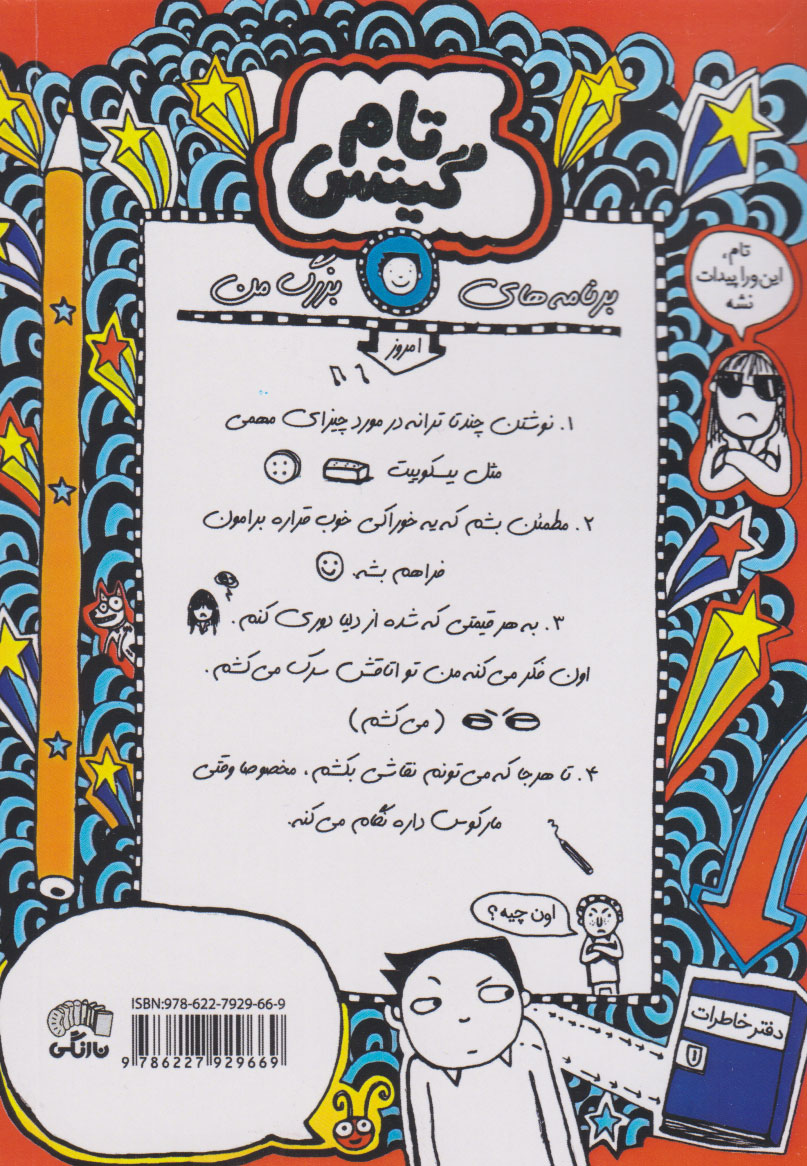 تام
گیتس
تام،
این ورا پیدات
نشه
برنامه های بزرگ من
امروز
۱. نوشتن چند تا ترانه در مورد چیزای مهمی
مثل بیسکوییت
۲. مطمئن بشم که یه خوراکی خوب قراره برامون
فراهم بشه.
۳. به هر قیمتی که شده از دلیا دوری کنم.
اون فکر می کنه من تو اتاقش سرک می کشم.
(می کشم)
۴. تا هر جا که می تونم نقاشی بکشم، مخصوصا وقتی
مارکوس داره نگام می کنه.
اون چیه؟
دفتر خاطرات
ISBN:978-622-7929-66-9
9 786227 929669
نارنگی